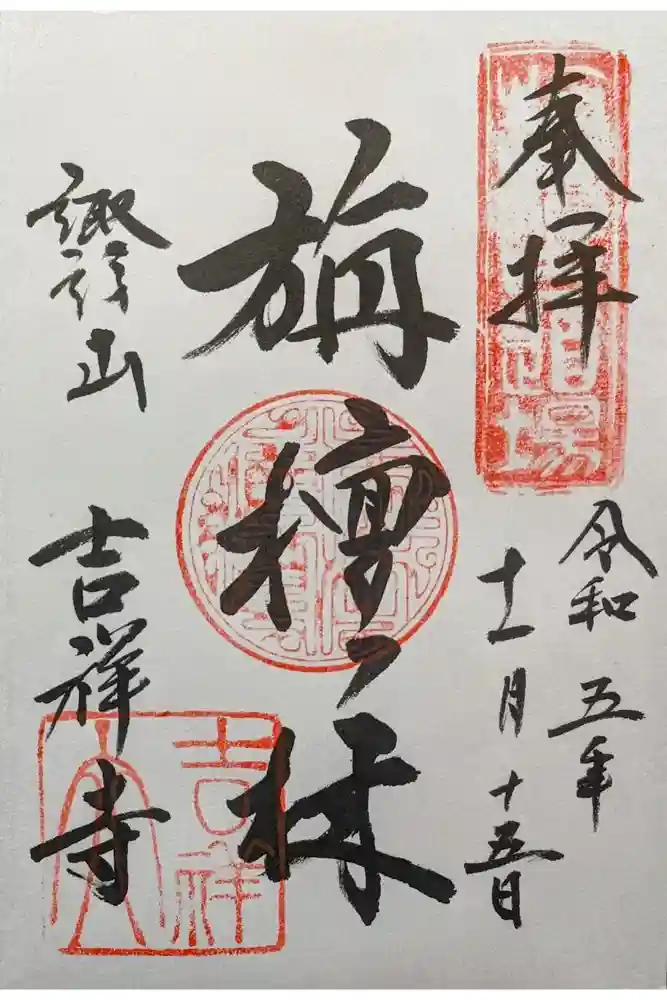 奉拝
道場
令和五年
十一月十五日
旃檀林
諏訪山
吉祥寺
吉祥